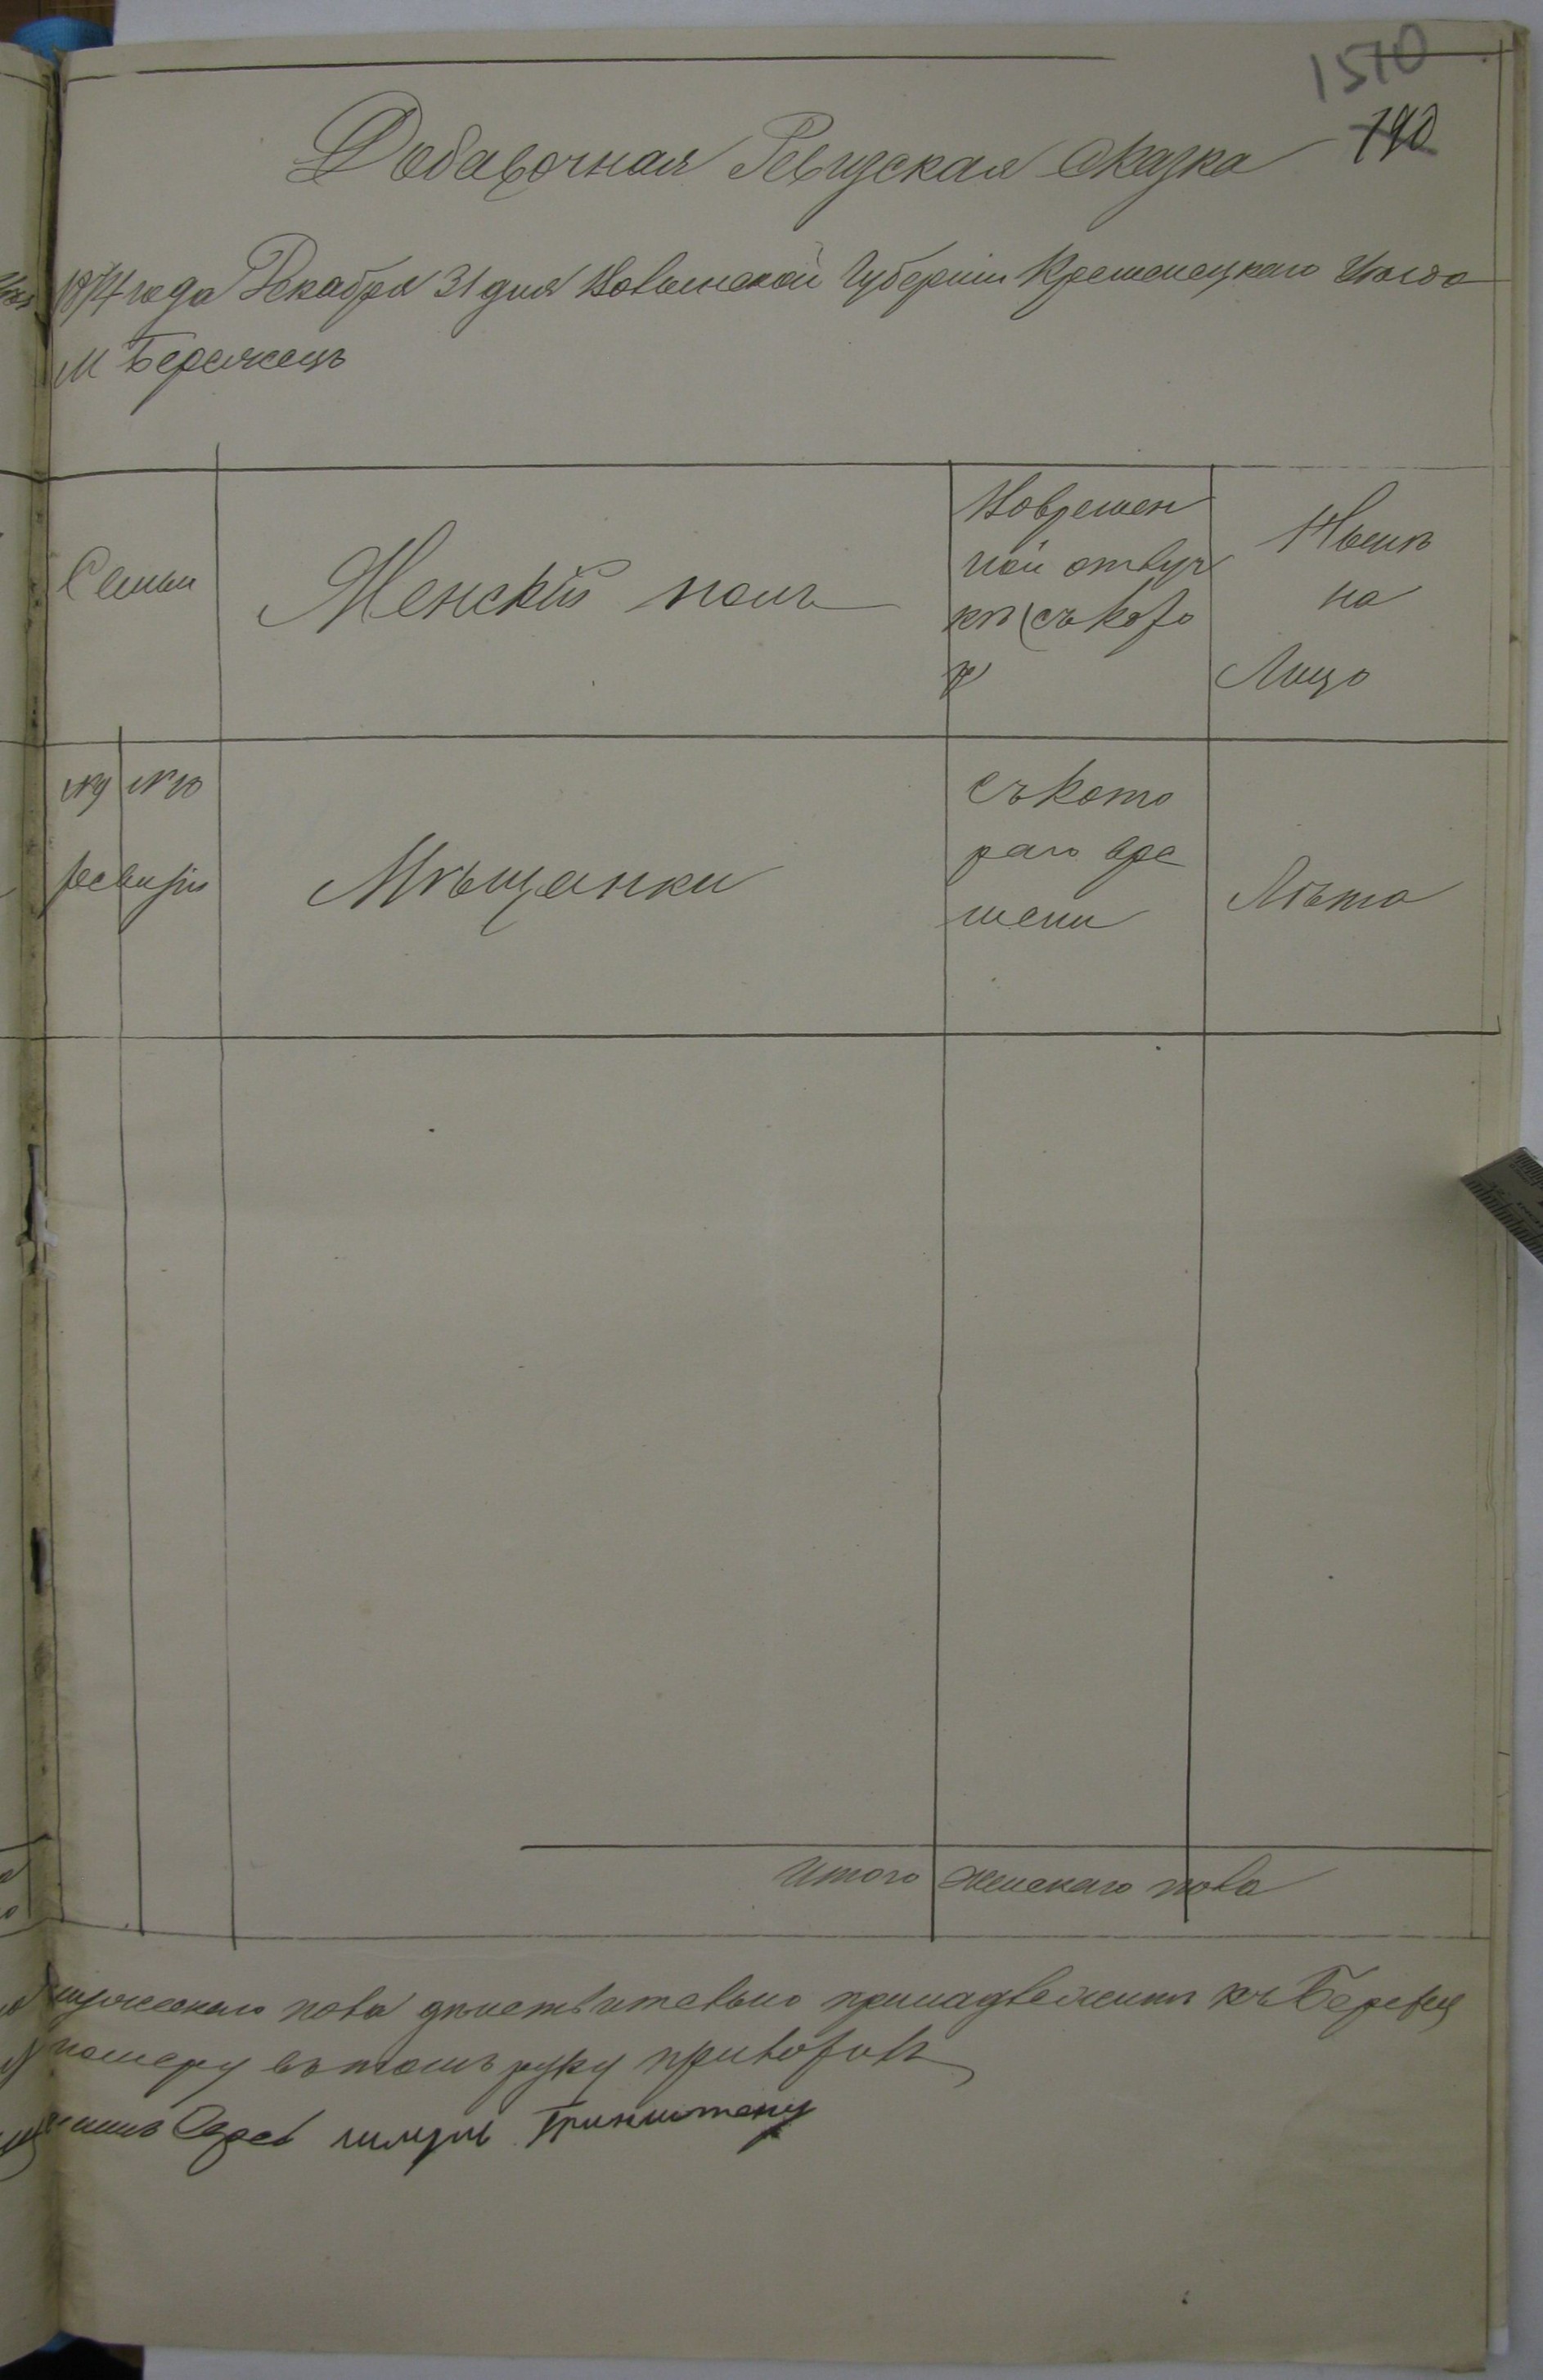 1510
190
Добавочная Ревизская Сказка
1874 года Декабря 31 дня Волынской Губернiи Кременецкаго Уѣзда
М Бережецъ
Семьи
Женскiй полъ
Вовремен
ной отлуч
кѣ (съ кого
Нынѣ
на
Лицо
№9 №10
ревизiи
Мѣщанки
съ кото
раго вре
мени
Лѣта
Итого женскаго пола
мужескаго пола дѣиствительно принадлежитъ къ Берез
номеру въ томъ руку приложилъ